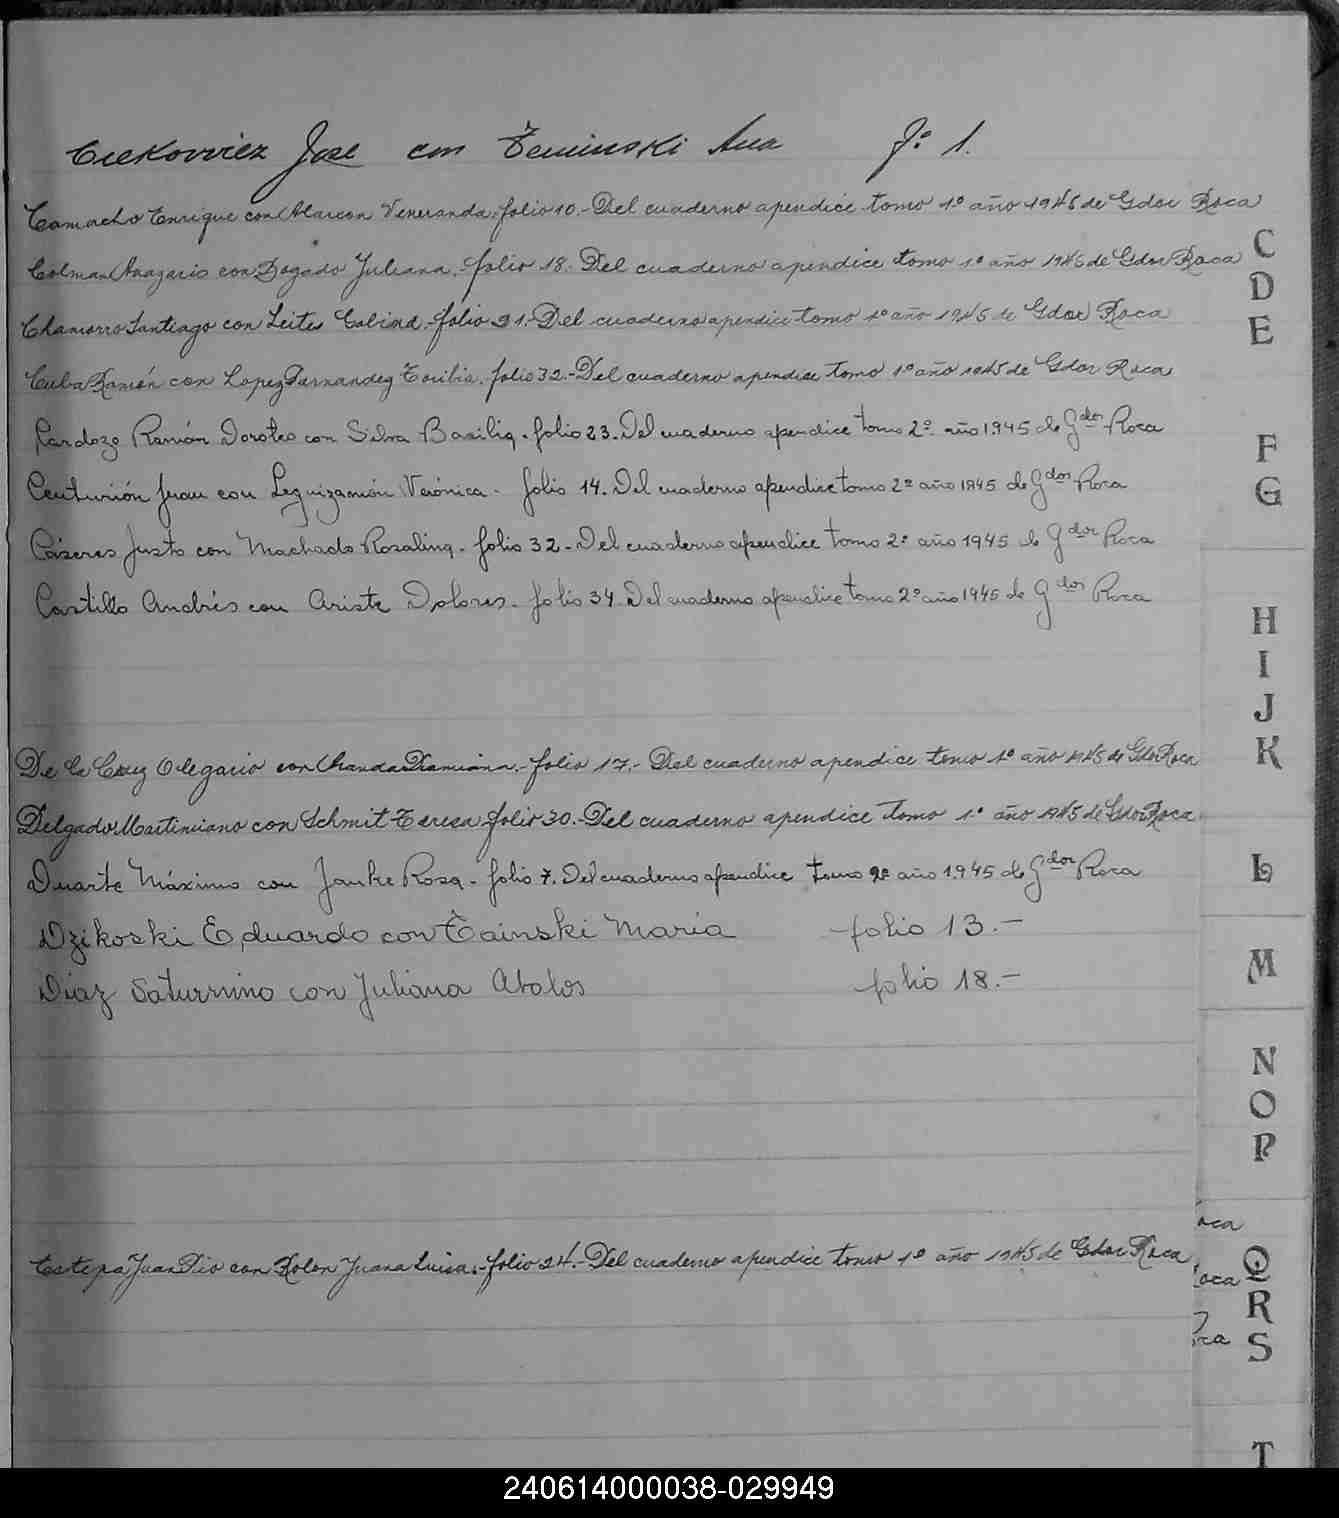 José con Ana fº 1.
Camacho Enrique con Alarcon Veneranda. folio 10.- Del cuaderno apendice tomo 1º año 1945 de Gdor Roca
Colman Anazario con Dogado Juliana. folio 18. Del cuaderno apendice tomo 1º año 1945 de Gdor Roca
Chamorro Santiago con Leites folio 21.- Del cuaderno apendice tomo 1º año 1945 de Gdor Roca
Cuba Ramón con Lopez Toribia. folio 32.- Del cuaderno apendice tomo 1º año 1945 de Gdor Roca
Cardozo Ramón Doroteo con Silva Basilia. folio 23. Del cuaderno apendice tomo 2º año 1945 de Gdor Roca
Centurión Juan con Leguizamón Verónica. folio 14. Del cuaderno apendice tomo 2º año 1945 de Gdor Roca
Cáseres Justo con Machado Rosalina. folio 32.- Del cuaderno apendice tomo 2º año 1945 de Gdor Roca
Castillo Andrés con Ariste Dolores. folio 34. Del cuaderno apendice tomo 2º año 1945 de Gdor Roca
De la Cruz Olegario con Damiana.- folio 17.- Del cuaderno apendice tomo 1º año 1945 de Gdor Roca
Delgado Martiniano con Schmit Teresa folio 30.- Del cuaderno apendice tomo 1º año 1945 de Gdor Roca
Duarte Máximo con Janke Rosa. folio 7. Del cuaderno apendice tomo 2º año 1945 de Gdor Roca
Dzikoski Eduardo con Tainski Maria folio 13.-
Diaz Saturnino con Juliana Abalos folio 18.-
Estepa Juan Pio con Rolon Juana Luisa.- folio 24.- Del cuaderno apendice tomo 1º año 1945 de Gdor Roca
oca
oca
oca
C
D
E
F
G
H
I
J
K
L
M
N
O
P
Q
R
S
T
240614000038-029949